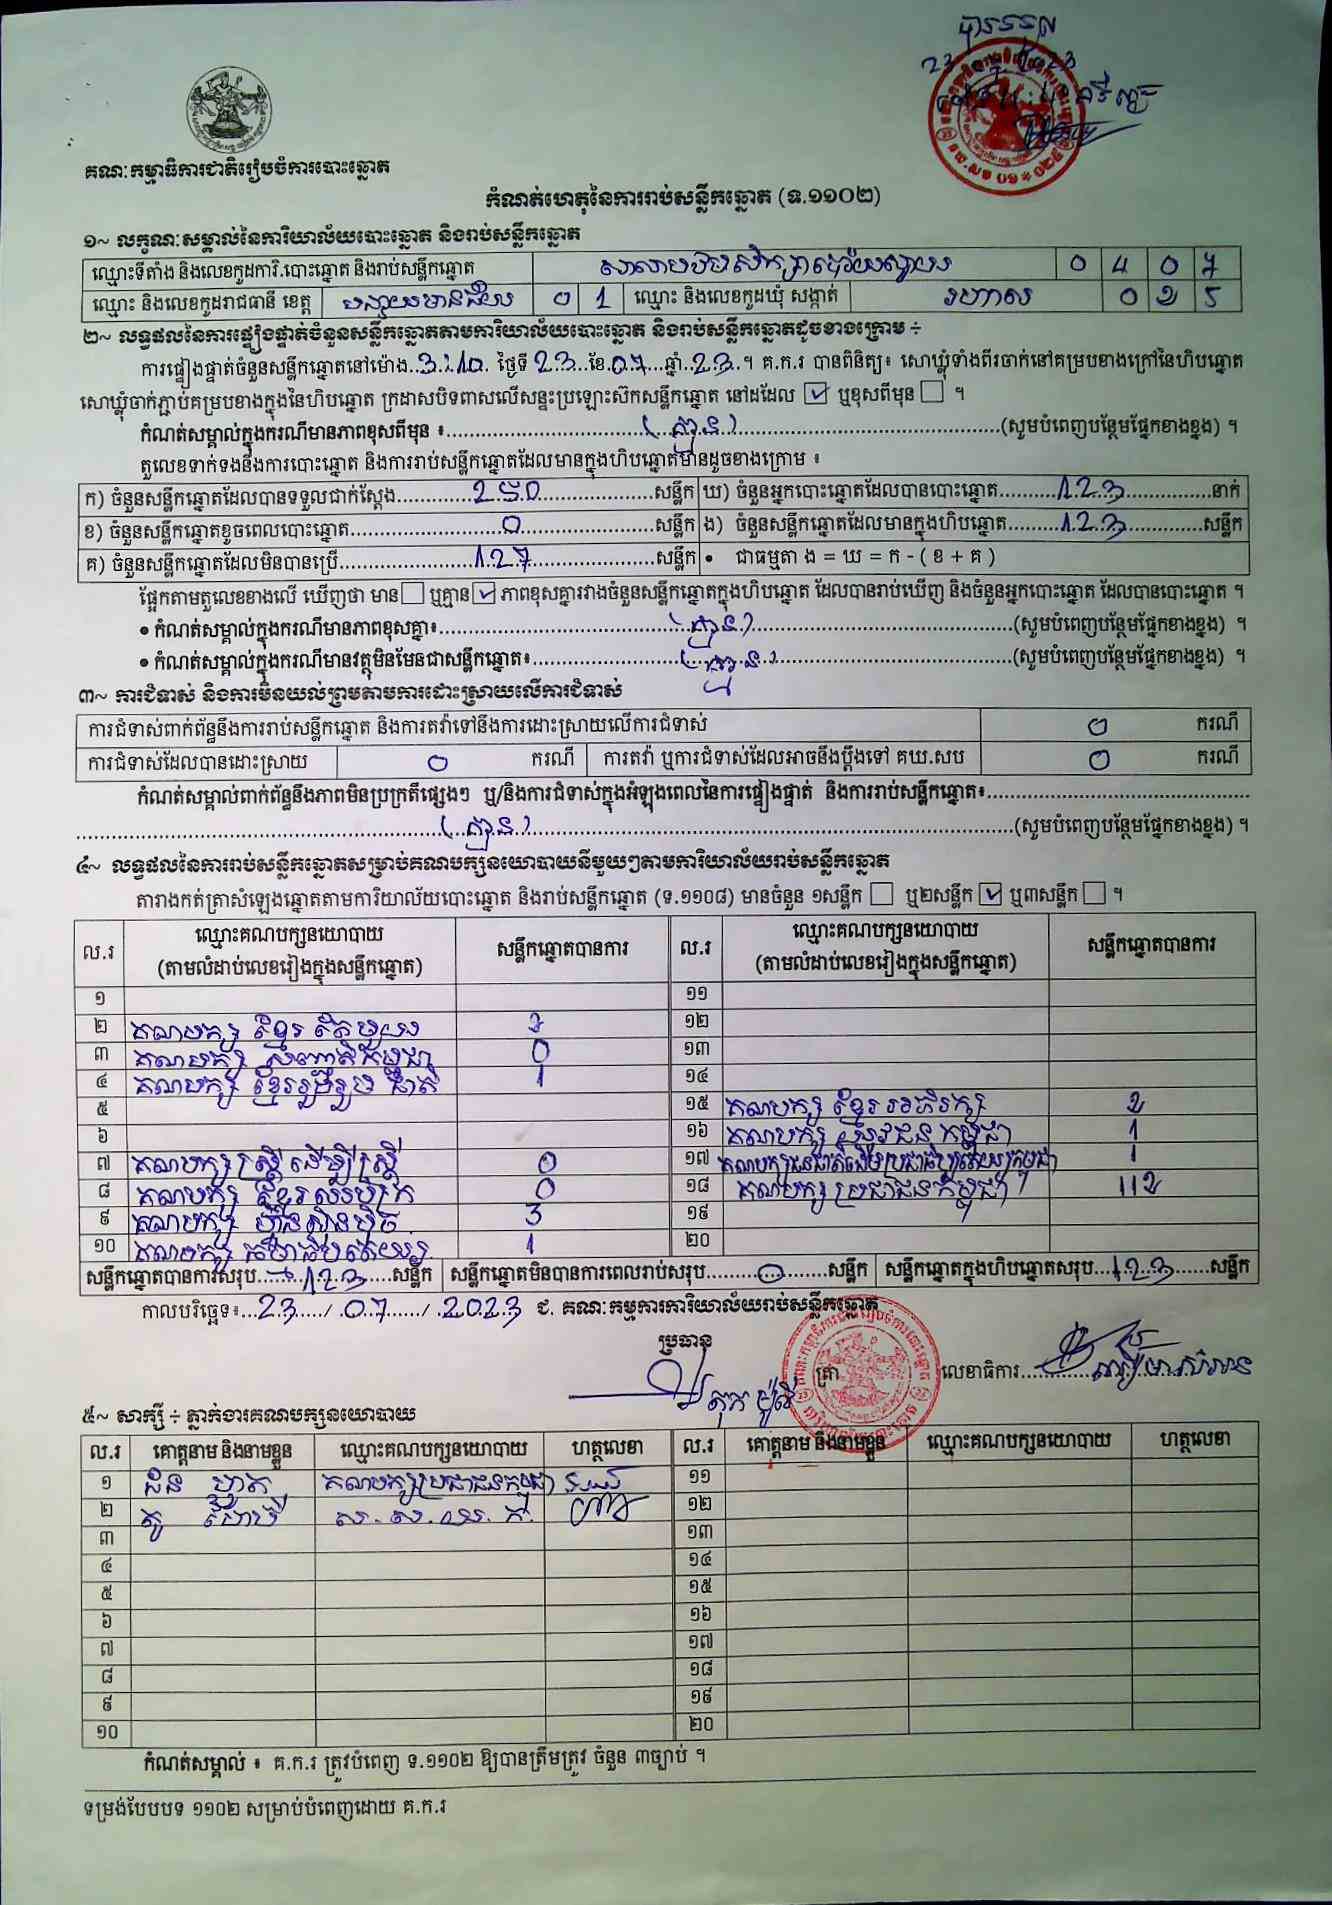 បានទទួល
23
គណៈកម្មាធិការជាតិរៀបចំការបោះឆ្នោត
កំណត់ហេតុនៃការរាប់សន្លឹកឆ្នោត (ទ.១១០២)
១~ លក្ខណៈសម្គាល់នៃការិយាល័យបោះឆ្នោត និងរាប់សន្លឹកឆ្នោត
ឈ្មោះទីតាំង និងលេខកូដការិ.បោះឆ្នោត និងរាប់សន្លឹកឆ្នោត 0 4 0 7
ឈ្មោះ និងលេខកូដរាជធានី ខេត្ត បន្ទាយមានជ័យ 0 1 ឈ្មោះ និងលេខកូដឃុំ សង្កាត់ រហាល 0 2 5
២~ លទ្ធផលនៃការផ្ទៀងផ្ទាត់ចំនួនសន្លឹកឆ្នោតតាមការិយាល័យបោះឆ្នោត និងរាប់សន្លឹកឆ្នោតដូចខាងក្រោម ÷
ការផ្ទៀងផ្ទាត់ចំនួនសន្លឹកឆ្នោតនៅម៉ោង 3:10 ថ្ងៃទី 23 ខែ 07 ឆ្នាំ 23 ។ គ.ក.រ បានពិនិត្យ៖ សោឃ្លុំទាំងពីរចាក់នៅគម្របខាងក្រៅនៃហិបឆ្នោត
សោឃ្លុំចាក់ភ្ជាប់គម្របខាងក្នុងនៃហិបឆ្នោត ក្រដាសបិទពាសលើសន្ទះប្រឡោះស៊កសន្លឹកឆ្នោត នៅដដែល ☑ ឬខុសពីមុន ☐ ។
កំណត់សម្គាល់ក្នុងករណីមានភាពខុសពីមុន ៖ (គ្មាន) (សូមបំពេញបន្ថែមផ្នែកខាងខ្នង) ។
តួលេខទាក់ទងនឹងការបោះឆ្នោត និងការរាប់សន្លឹកឆ្នោតដែលមានក្នុងហិបឆ្នោតមានដូចខាងក្រោម ៖
ក) ចំនួនសន្លឹកឆ្នោតដែលបានទទួលជាក់ស្តែង 250 សន្លឹក ឃ) ចំនួនអ្នកបោះឆ្នោតដែលបានបោះឆ្នោត 123 នាក់
ខ) ចំនួនសន្លឹកឆ្នោតខូចពេលបោះឆ្នោត 0 សន្លឹក ង) ចំនួនសន្លឹកឆ្នោតដែលមានក្នុងហិបឆ្នោត 123 សន្លឹក
គ) ចំនួនសន្លឹកឆ្នោតដែលមិនបានប្រើ 127 សន្លឹក • ជាធម្មតា ង = ឃ = ក - ( ខ + គ )
ផ្អែកតាមតួលេខខាងលើ ឃើញថា មាន ☐ ឬគ្មាន ☑ ភាពខុសគ្នារវាងចំនួនសន្លឹកឆ្នោតក្នុងហិបឆ្នោត ដែលបានរាប់ឃើញ និងចំនួនអ្នកបោះឆ្នោត ដែលបានបោះឆ្នោត ។
• កំណត់សម្គាល់ក្នុងករណីមានភាពខុសគ្នា៖ (គ្មាន) (សូមបំពេញបន្ថែមផ្នែកខាងខ្នង) ។
• កំណត់សម្គាល់ក្នុងករណីមានវត្ថុមិនមែនជាសន្លឹកឆ្នោត៖ (គ្មាន) (សូមបំពេញបន្ថែមផ្នែកខាងខ្នង) ។
៣~ ការជំទាស់ និងការមិនយល់ព្រមតាមការដោះស្រាយលើការជំទាស់
ការជំទាស់ពាក់ព័ន្ធនឹងការរាប់សន្លឹកឆ្នោត និងការតវ៉ាទៅនឹងការដោះស្រាយលើការជំទាស់ 0 ករណី
ការជំទាស់ដែលបានដោះស្រាយ 0 ករណី ការតវ៉ា ឬការជំទាស់ដែលអាចនឹងប្តឹងទៅ គឃ.សប 0 ករណី
កំណត់សម្គាល់ពាក់ព័ន្ធនឹងភាពមិនប្រក្រតីផ្សេងៗ ឬ/និងការជំទាស់ក្នុងអំឡុងពេលនៃការផ្ទៀងផ្ទាត់ និងការរាប់សន្លឹកឆ្នោត៖
(គ្មាន) (សូមបំពេញបន្ថែមផ្នែកខាងខ្នង) ។
៤~ លទ្ធផលនៃការរាប់សន្លឹកឆ្នោតសម្រាប់គណបក្សនយោបាយនីមួយៗតាមការិយាល័យរាប់សន្លឹកឆ្នោត
តារាងកត់ត្រាសំឡេងឆ្នោតតាមការិយាល័យបោះឆ្នោត និងរាប់សន្លឹកឆ្នោត (ទ.១១០៨) មានចំនួន ១សន្លឹក ☐ ឬ២សន្លឹក ☑ ឬ៣សន្លឹក ☐ ។
ល.រ ឈ្មោះគណបក្សនយោបាយ (តាមលំដាប់លេខរៀងក្នុងសន្លឹកឆ្នោត) សន្លឹកឆ្នោតបានការ ល.រ ឈ្មោះគណបក្សនយោបាយ (តាមលំដាប់លេខរៀងក្នុងសន្លឹកឆ្នោត) សន្លឹកឆ្នោតបានការ
១ ១១
២ គណបក្ស ខ្មែរ តែមួយ ១២
៣ គណបក្ស 0 ១៣
៤ គណបក្ស ខ្មែររួបរួម ជាតិ 1 ១៤
៥ ១៥ គណបក្ស ខ្មែរ អភិរក្ស 2
៦ ១៦ គណបក្ស យុវជន កម្ពុជា 1
៧ គណបក្ស ស្ត្រី ដើម្បី ស្ត្រី 0 ១៧ គណបក្សជនជាតិដើមប្រជាធិបតេយ្យកម្ពុជា 1
៨ គណបក្ស ខ្មែរ 0 ១៨ គណបក្ស ប្រជាជនកម្ពុជា 112
៩ គណបក្ស ហ្វ៊ុនស៊ិនប៉ិច 3 ១៩
១០ គណបក្ស កម្មាធិបតេយ្យ 1 ២០
សន្លឹកឆ្នោតបានការសរុប 123 សន្លឹក សន្លឹកឆ្នោតមិនបានការពេលរាប់សរុប 0 សន្លឹក សន្លឹកឆ្នោតក្នុងហិបឆ្នោតសរុប 123 សន្លឹក
កាលបរិច្ឆេទ៖ 23 / 07 / 2023 ជ. គណៈកម្មការការិយាល័យរាប់សន្លឹកឆ្នោត
ប្រធាន
ត្រា
លេខាធិការ
៥~ សាក្សី ÷ ភ្នាក់ងារគណបក្សនយោបាយ
ល.រ គោត្តនាម និងនាមខ្លួន ឈ្មោះគណបក្សនយោបាយ ហត្ថលេខា ល.រ គោត្តនាម និងនាមខ្លួន ឈ្មោះគណបក្សនយោបាយ ហត្ថលេខា
១ គណបក្សប្រជាជនកម្ពុជា ១១
២ ស.ស.យ.ក. ១២
៣ ១៣
៤ ១៤
៥ ១៥
៦ ១៦
៧ ១៧
៨ ១៨
៩ ១៩
១០ ២០
កំណត់សម្គាល់ ៖ គ.ក.រ ត្រូវបំពេញ ទ.១១០២ ឱ្យបានត្រឹមត្រូវ ចំនួន ៣ច្បាប់ ។
ទម្រង់បែបបទ ១១០២ សម្រាប់បំពេញដោយ គ.ក.រ